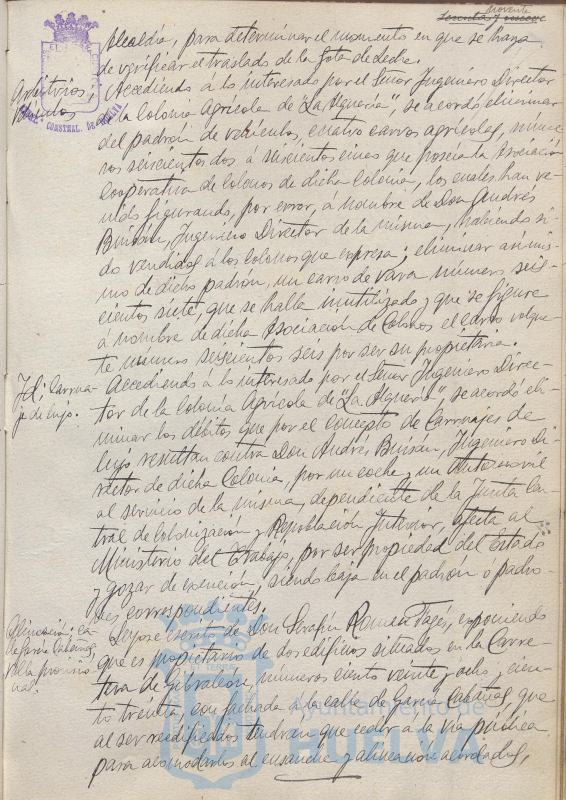 noventa
sesenta y nueve
Alcaldía, para determinar el momento en que se haya
de verificar el traslado de la Gota de Leche.
Arbitrios
Accediendo á lo interesado por el Señor Ingeniero Director
de la Colonia Agricola de "La Alquería", se acordó eliminar
del padrón de vehiculos, cuatro carros agrícolas, núme-
ros seiscientos dos á seiscientos cinco que poseía la Asociación
Cooperativa de Colonos de dicha Colonia, los cuales han ve-
nido figurando, por error, á nombre de Don Andrés
Buisán, Ingeniero Director de la misma, habiendo si-
do vendidos á los colonos que expresa; eliminar asimis-
mo de dicho padrón, un carro de vara número seis-
cientos siete, que se halla inutilizado y que se figure
á nombre de dicha Asociación de Colonos el carro volque-
te número seiscientos seis por ser su propietaria.
Id: Carrua-
je de lujo.
Accediendo á lo interesado por el Señor Ingeniero Direc-
tor de la Colonia Agricola de "La Alquería", se acordó eli-
minar los débitos que por el concepto de Carruajes de
lujo resultan contra Don Andrés Buisán, Ingeniero Di-
rector de dicha Colonia, por un coche y un Automovil
al servicio de la misma, dependiente de la Junta Cen-
tral de Colonización y Repoblación Interior, afecta al
Ministerio del Trabajo, por ser propiedad del Estado
y gozar de exención, siendo baja en el padrón o padro-
nes correspondientes.
Alineación: ca-
lle García Cabañas
Leyose escrito de Don Serafín Romeu Fagés, exponiendo
que es propietario de dos edificios situados en la Carre-
tera de Gibraleón, números ciento veinte y ocho y cien-
to treinta, con fachada a la calle de García Cabañas, que
al ser reedificados tendrán que ceder a la vía pública
para acomodarlos al ensanche y alineación acordados,
Ayuntamiento de
HUELVA